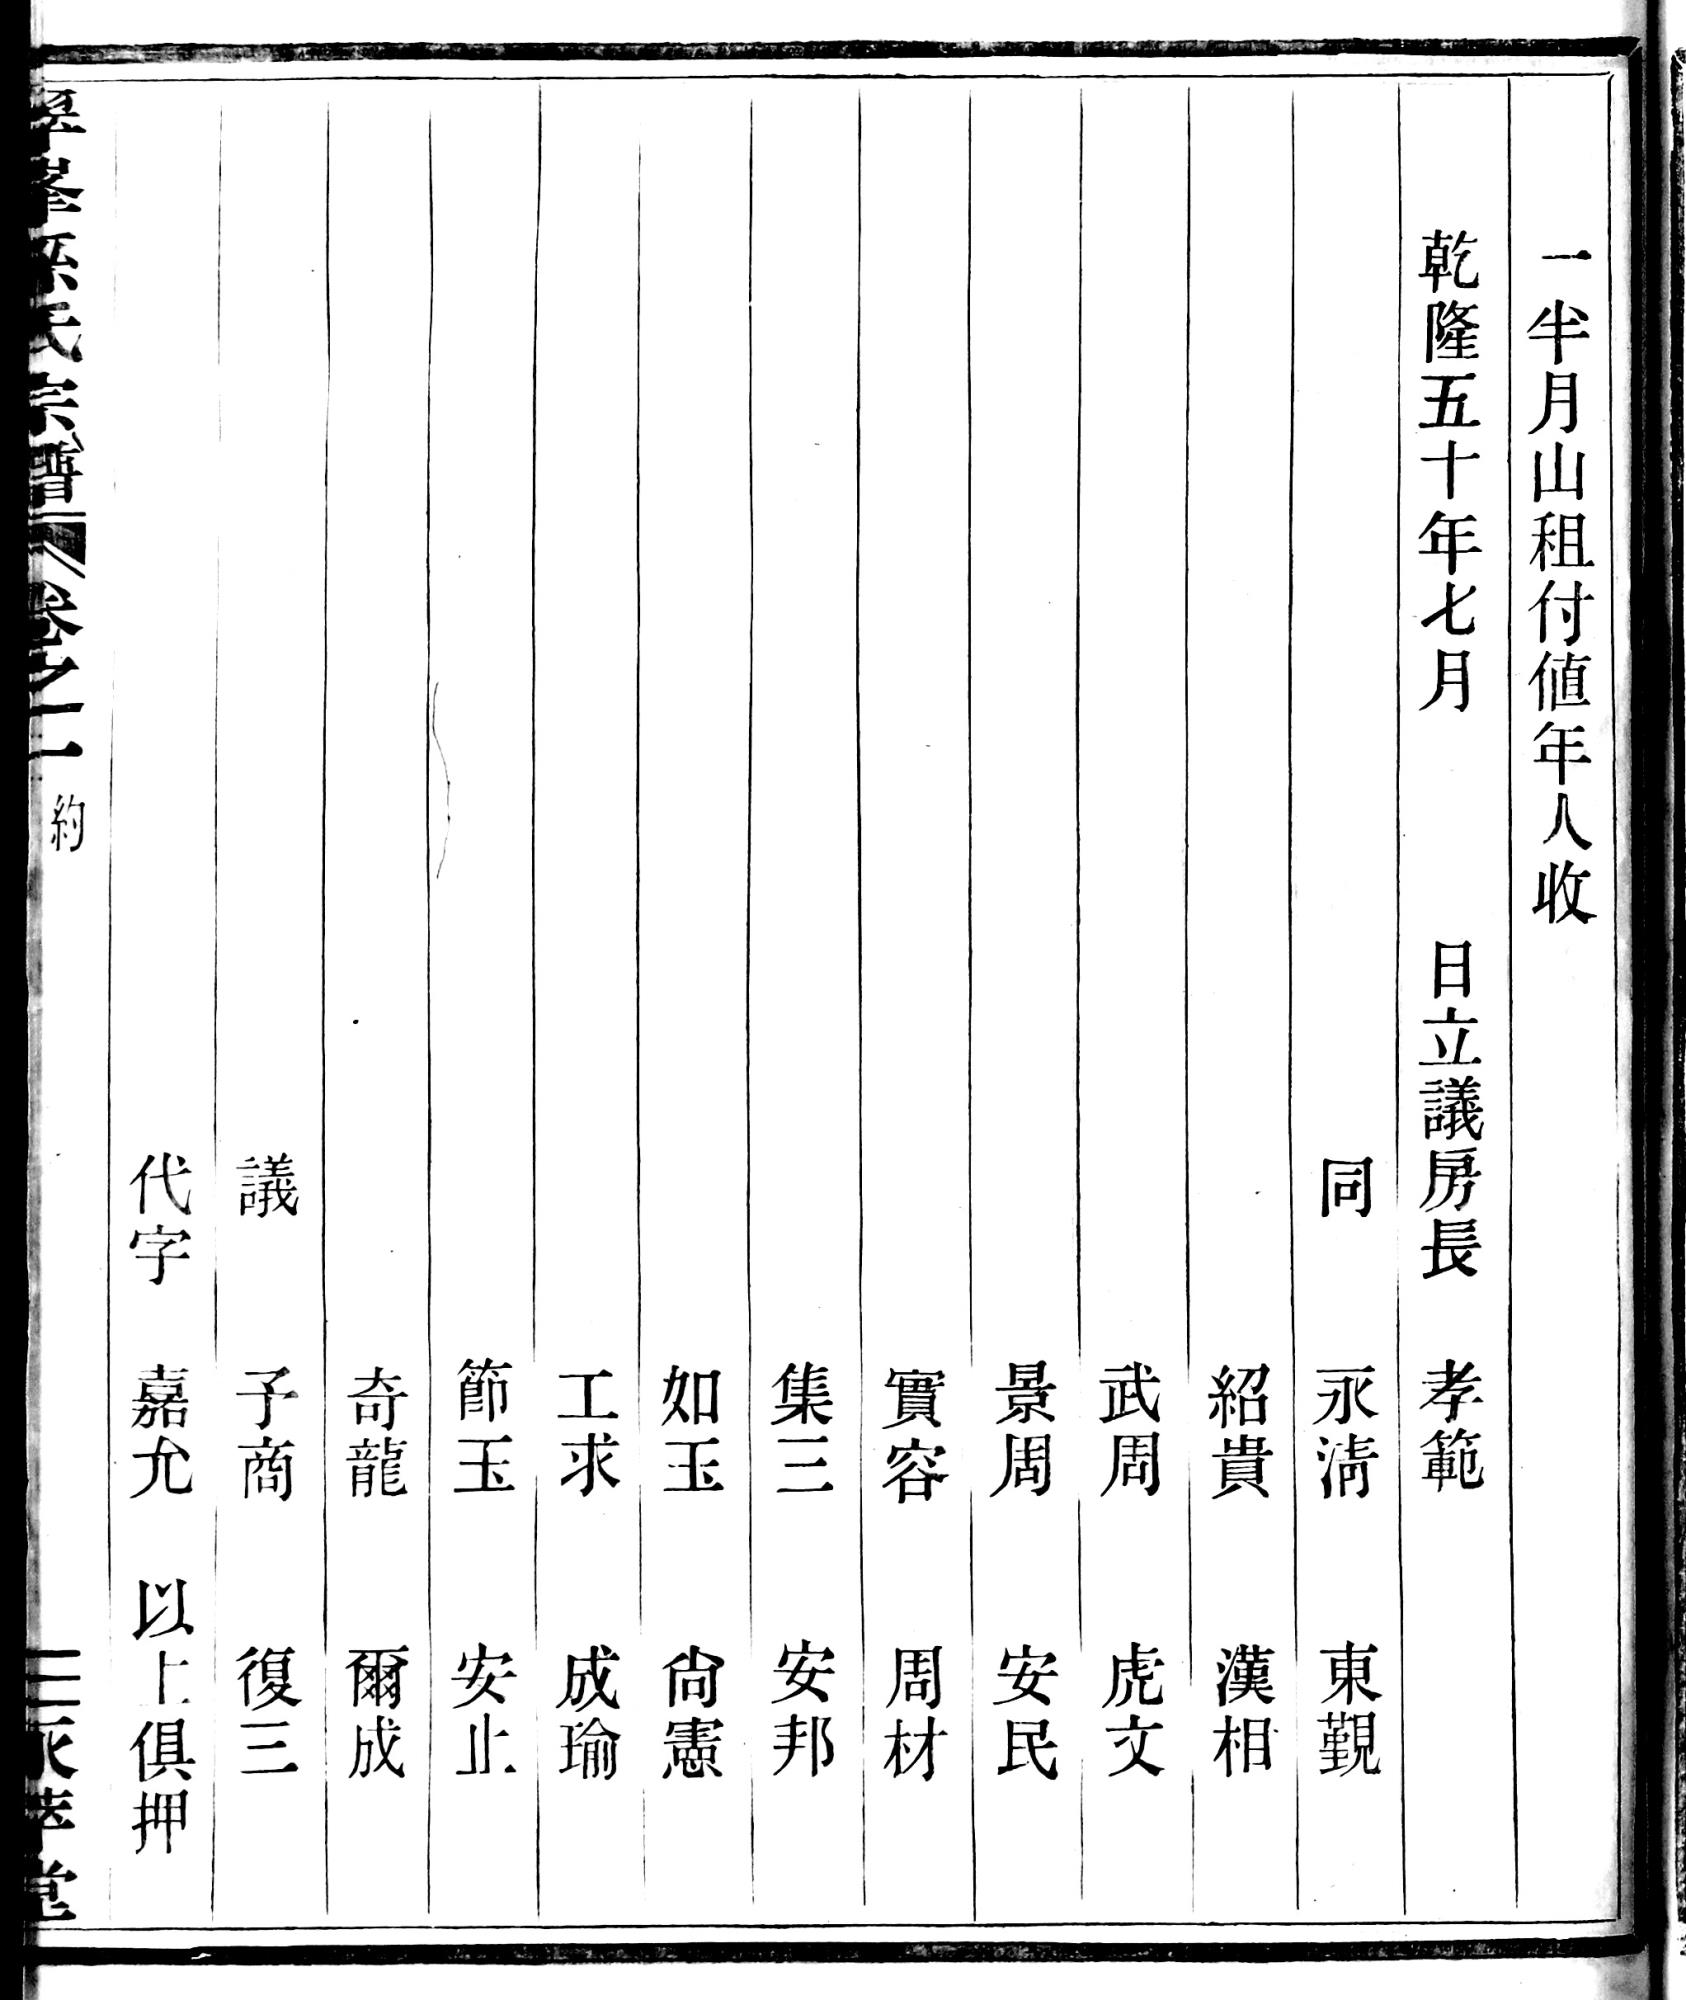 一半月山租付值年人收
乾隆五十年七月 日立議房長 孝範
同 永淸 東覲
紹貴 漢相
武周 虎文
景周 安民
實容 周材
集三 安邦
如玉 尙憲
工求 成瑜
節玉 安止
奇龍 爾成
議 子商 復三
代字 嘉允 以上俱押
峯孫氏宗譜 卷之一 約 二 永萃堂